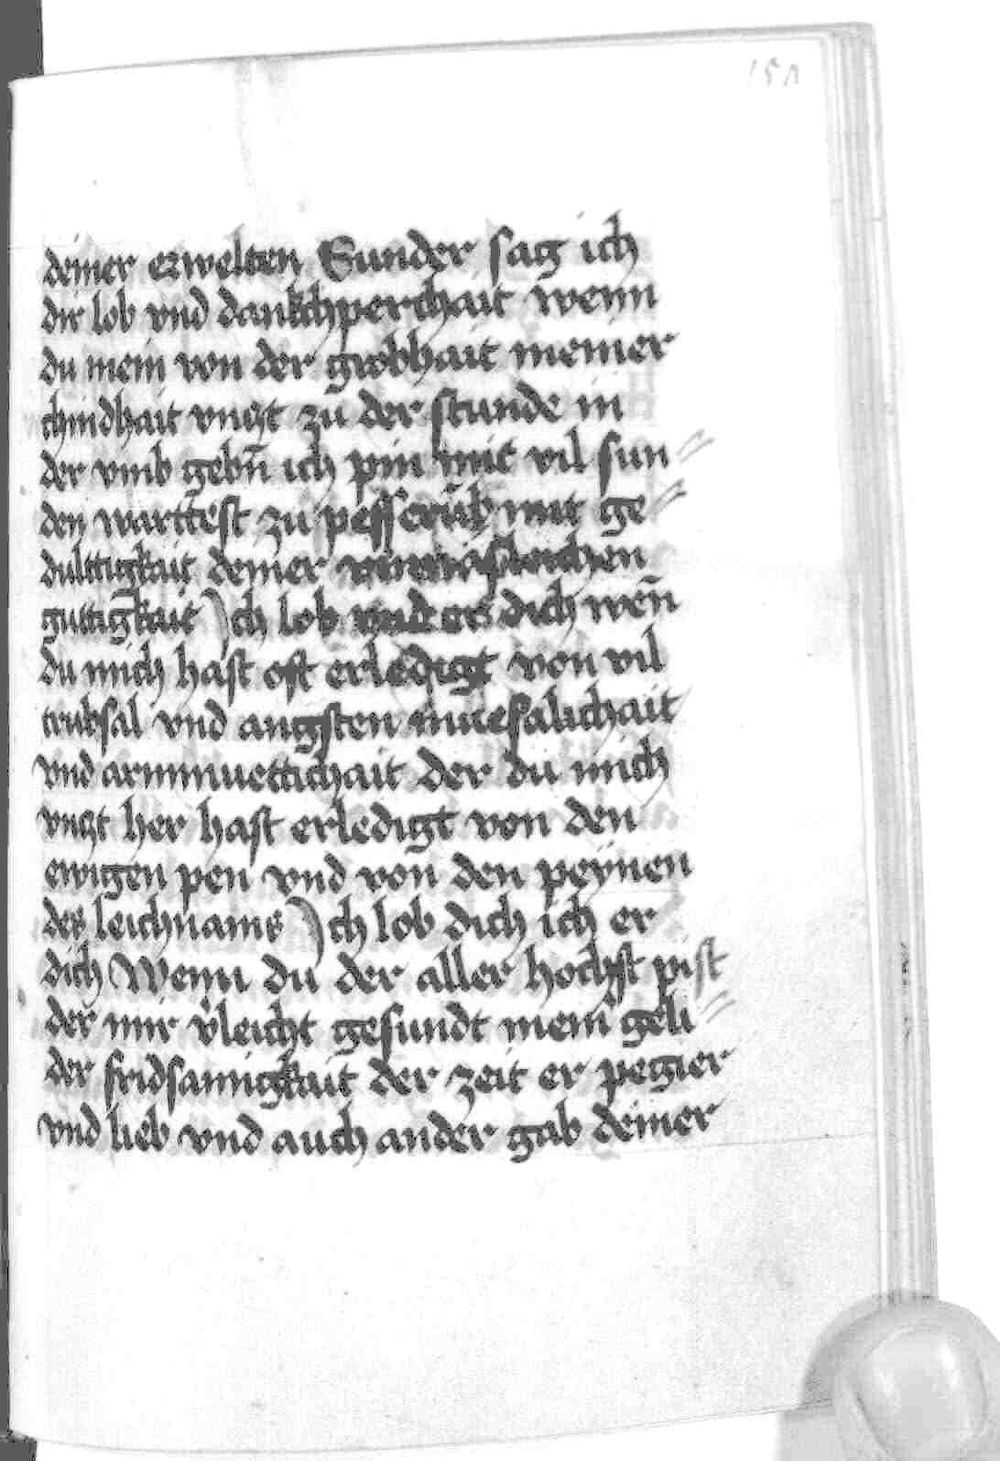 151
deiner erwelten Sunder sag ich
dir lob vnd dankchperchait wenn
du mein von der grobhait meiner
chindhait vnczt zu der stunde in
der vmb gebñ ich pin mit vil sun⸗
den warttest zu pesserũg mit ge⸗
dulttigkait deiner
guttigkait Ich lob vnd er dich weñ
du mich hast oft erledigt von vil
trubsal vnd angsten muesalichait
vnd armmuettichait der du mich
vnczt her hast erledigt von den
ewigen pen vnd von den peynen
des leichnams Ich lob dich ich er
dich Wenn du der aller hochst pist
der mir v̈leicht gesundt mein geli⸗
der fridsamigkait der zeit er pegier
vnd lieb vnd auch ander gab deiner